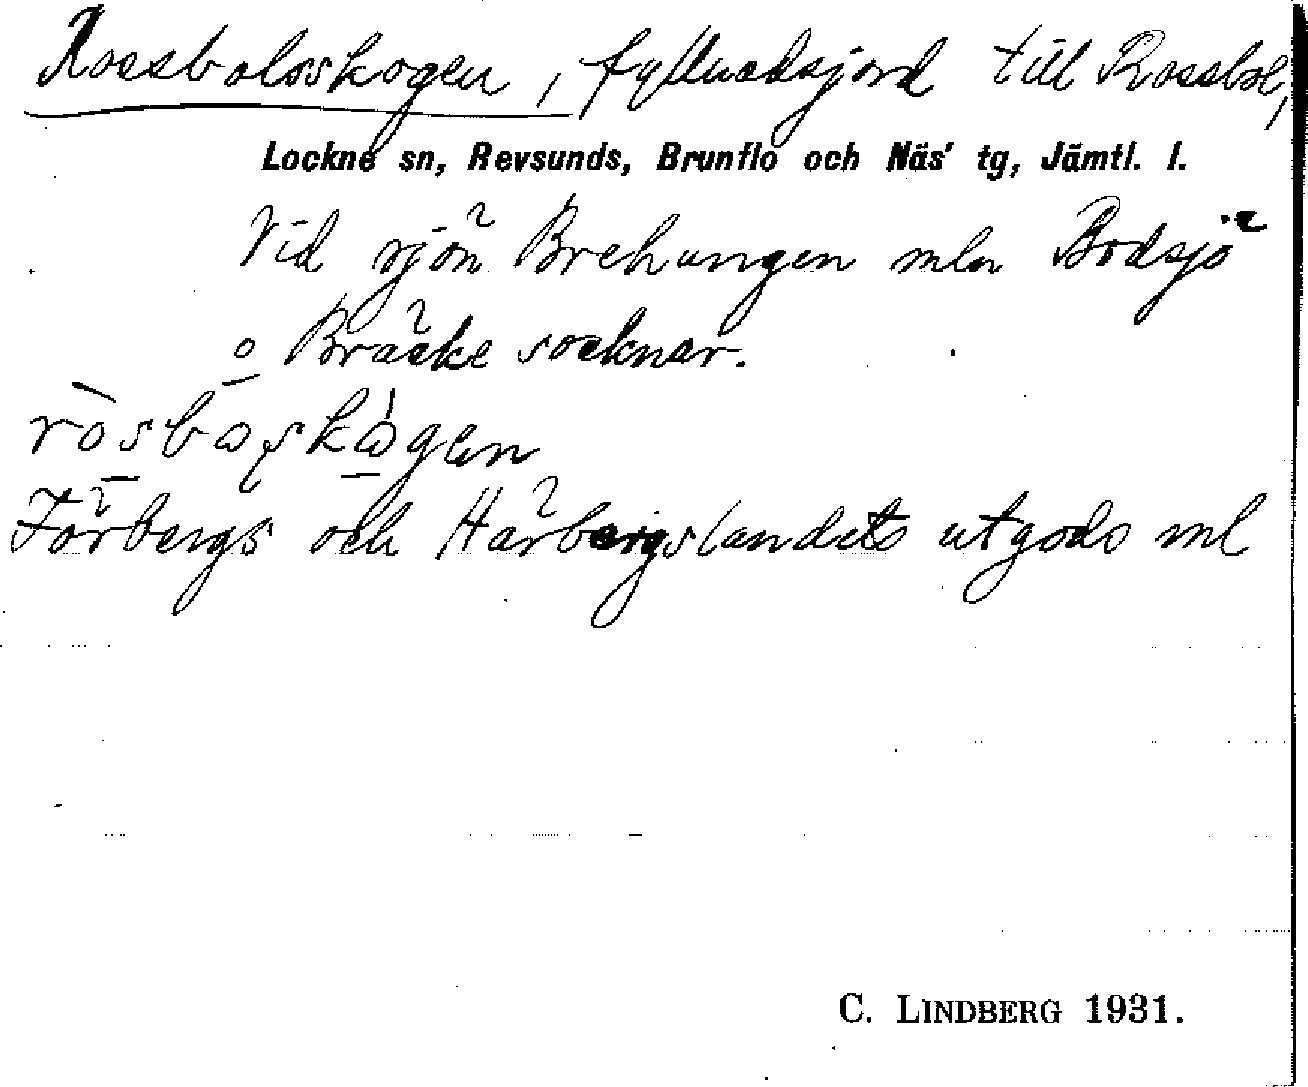 Rossbolsskogen, fyllnadsjord till Rossbol,
Lockne sn, Revsunds, Brunflo och Näs' tg, Jämtl. l.
Vid sjön Brehungen mln Bodsjö
o Bräcke socknar.
ròsbaskàgen
Förbergs och Härbergslandets utgods ml
C. LINDBERG 1931.